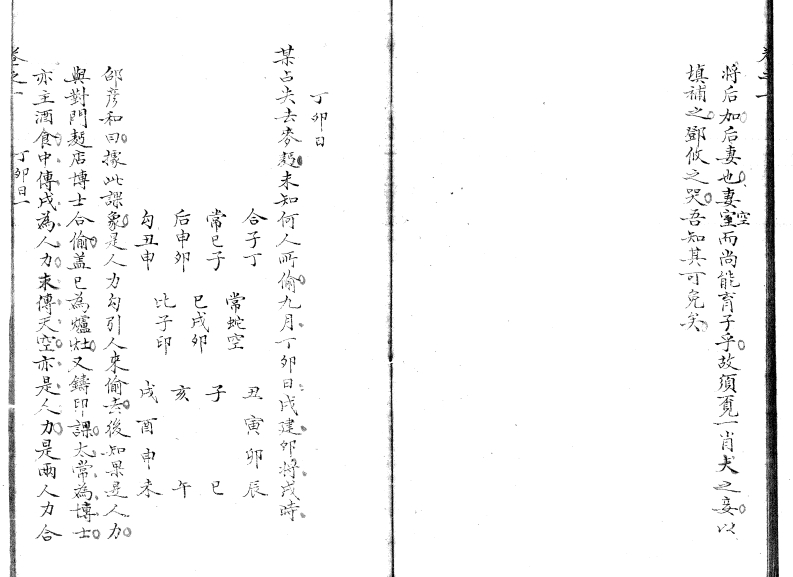 卷之一
將后加后妻也妻空室而尚能育子乎故須覓一肖犬之妾以
填補之鄧攸之哭吾知其可免矣
丁卯日
某占失去麥麪未知何人所偷九月丁卯日戌建卯將戌時
合子丁
常巳子
后申卯
勾丑申
常蛇空
巳戌卯
比子印
丑寅卯辰
子 巳
亥 午
戌酉申未
邵彦和曰據此課象是人力勾引人來偷去後知果是人力
與對門麪店博士合偷蓋巳為爐灶又鑄印課太常為博士
亦主酒食中傳戌為人力末傳天空亦是人力是兩人力合
卷之一 丁卯日一